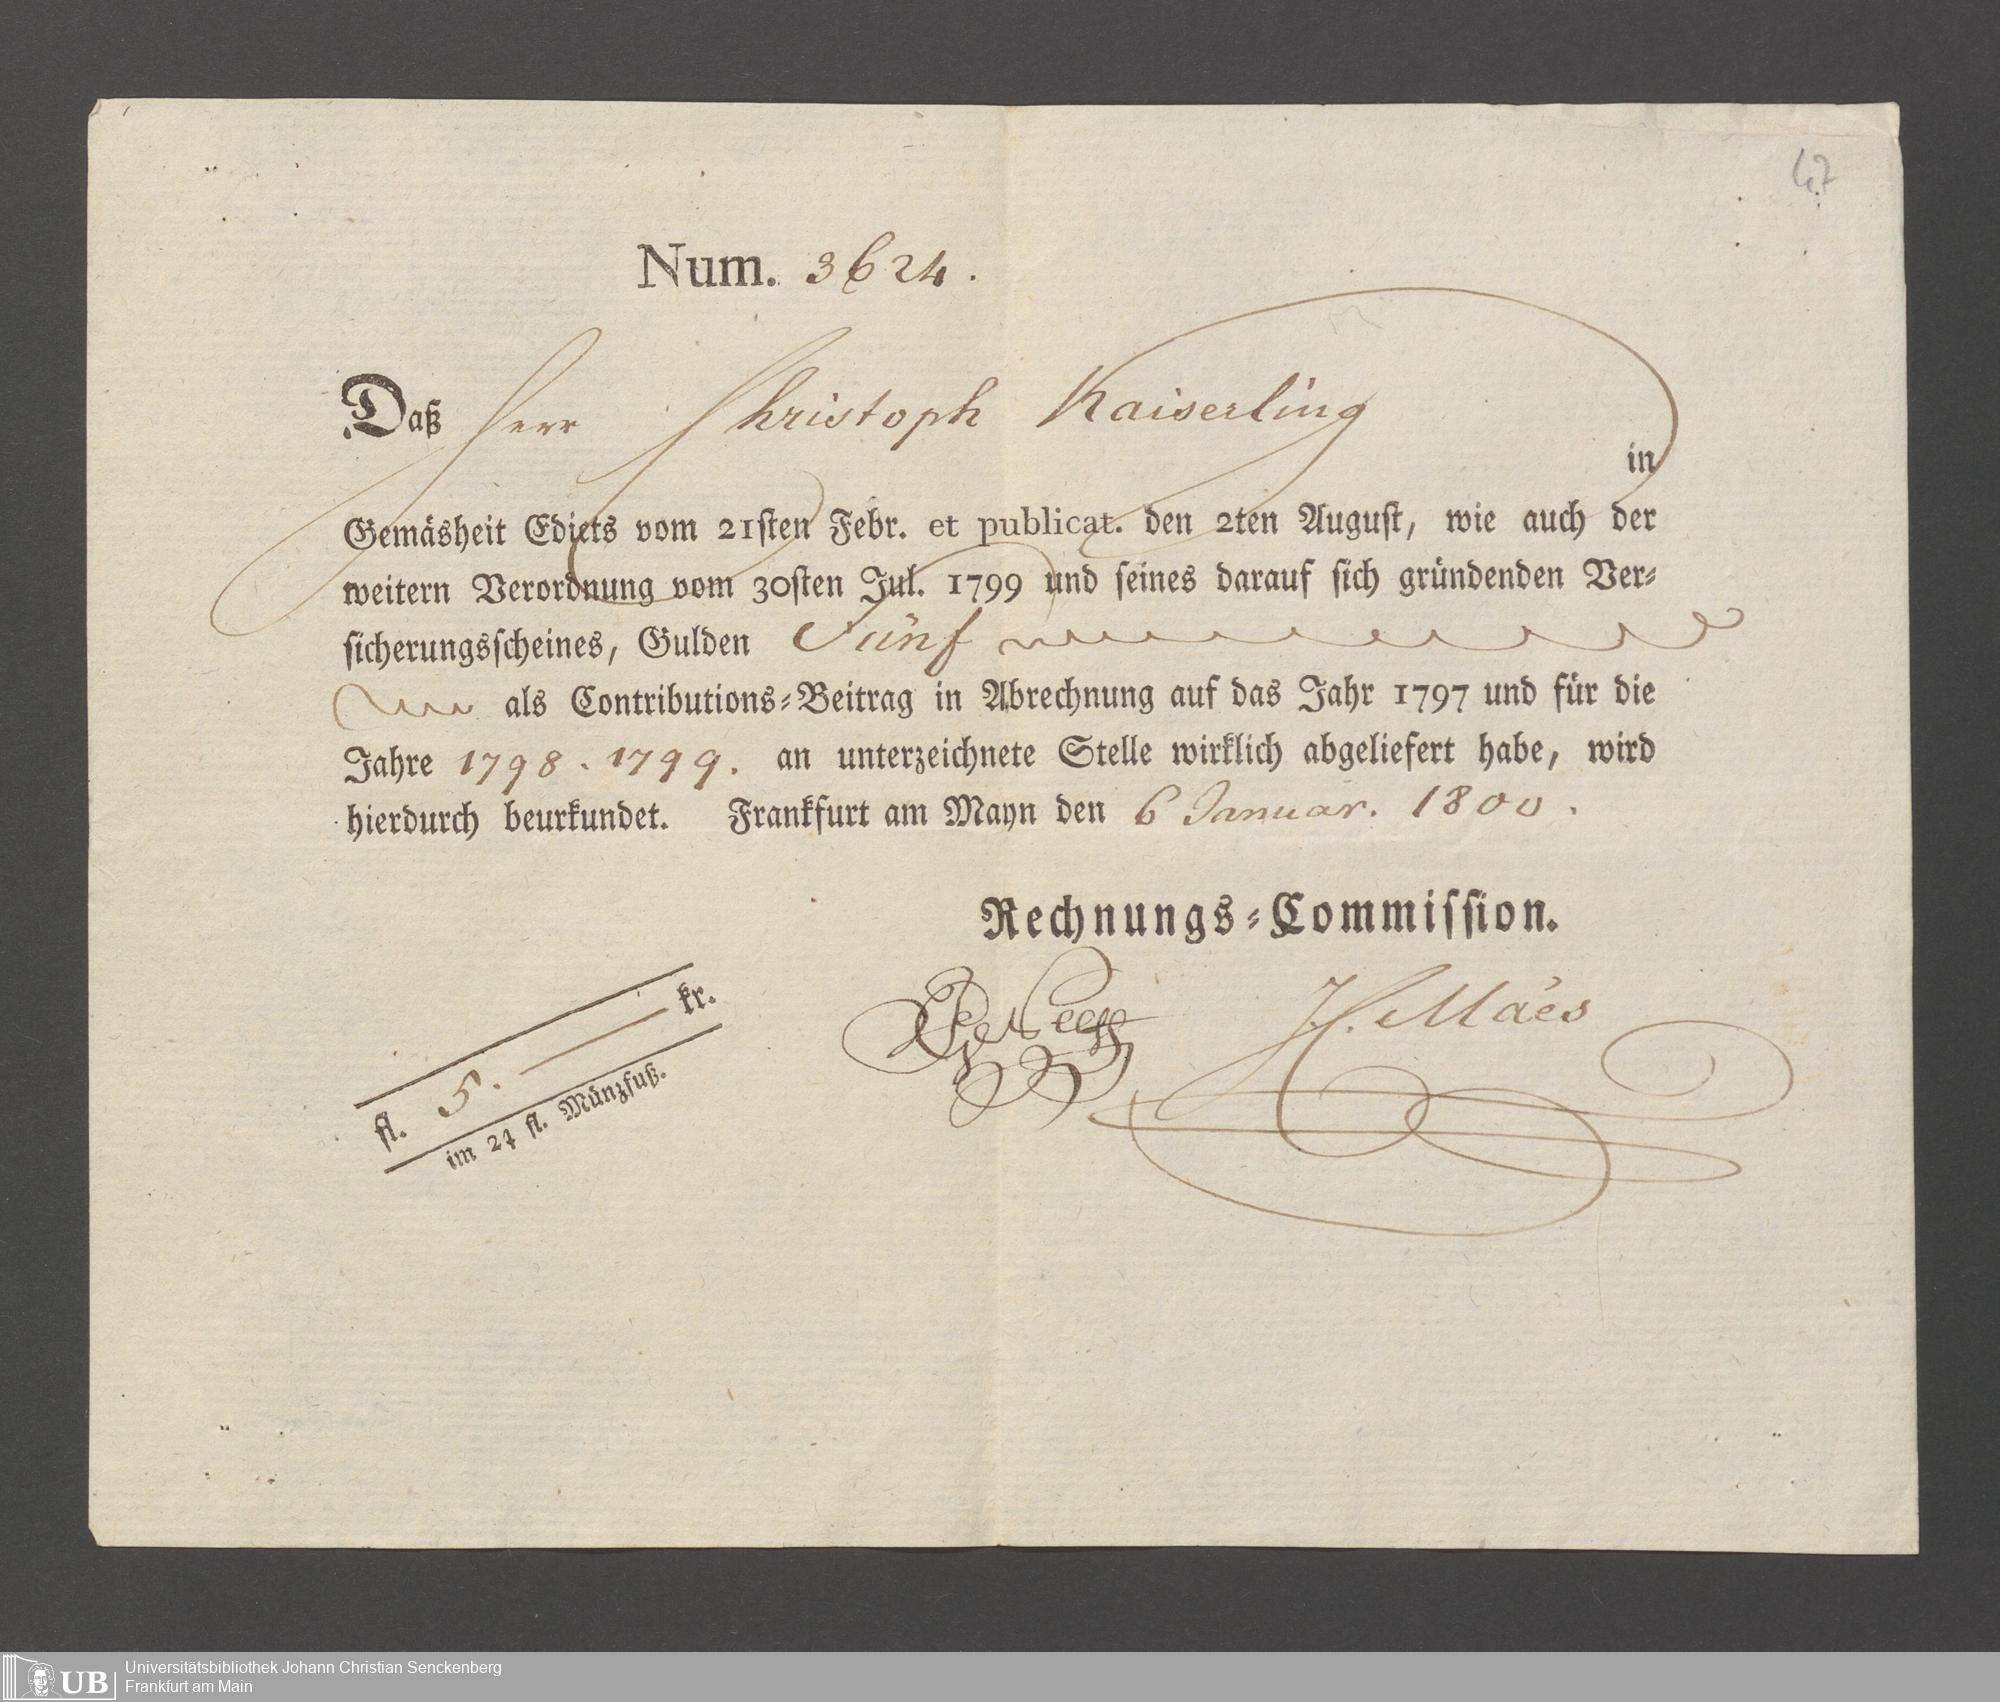 47
Num. 3624.
Daß Herr Christoph Kaiserling
in
Gemäsheit Edicts vom 21sten Febr. et publicat. den 2ten August, wie auch der
weitern Verordnung vom 30sten Jul. 1799 und seines darauf sich gründenden Ver-
sicherungsscheines, Gulden Fünf
als Contributions-Beitrag in Abrechnung auf das Jahr 1797 und für die
Jahre 1798. 1799. an unterzeichnete Stelle wirklich abgeliefert habe, wird
hierdurch beurkundet. Frankfurt am Mayn den 6 Januar. 1800.
Rechnungs-Commission.
H. Máes
fl. 5. — kr.
im 24 fl. Münzfuß.
UB
Universitätsbibliothek Johann Christian Senckenberg
Frankfurt am Main